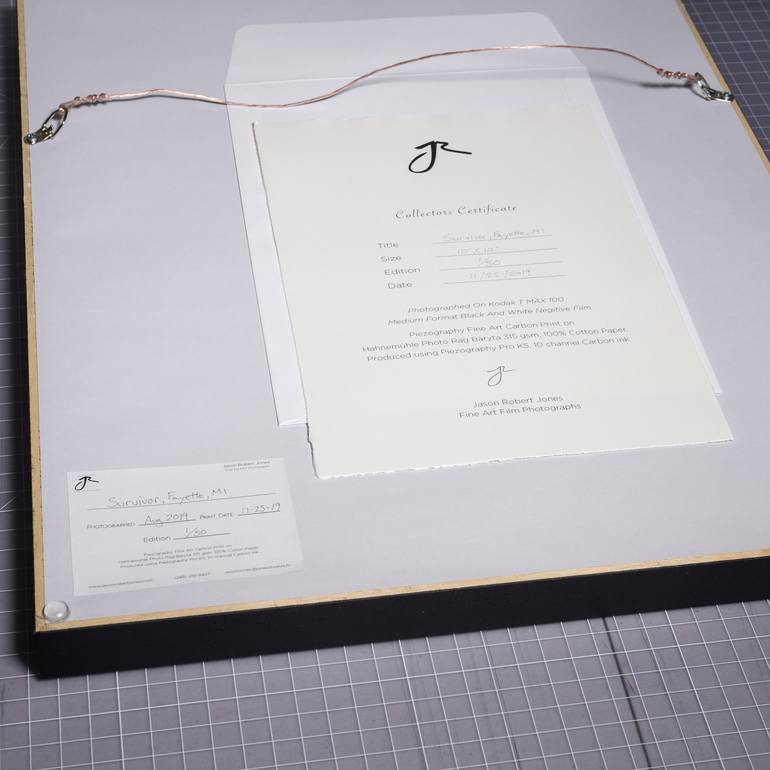 JR
Collectors Certificate
Title Survivor, Fayette, MI
Size 10" X 10"
Edition 1/50
Date 11/25/2019
Photographed On Kodak T MAX 100
Medium Format Black And White Negitive Film
Piezography Fine Art Carbon Print on
Hahnemühle Photo Rag Baryta 315 gsm, 100% Cotton Paper.
Produced using Piezography Pro K5, 10 channel Carbon ink
JR
Jason Robert Jones
Fine Art Film Photographs
JR
Jason Robert Jones
Survivor, Fayette, MI
PHOTOGRAPHED Aug 2019 PRINT DATE 11-25-19
Edition 1/50
Piezography Fine Art Carbon Print on
Hahnemühle Photo Rag Baryta 315 gsm, 100% Cotton Paper.
Produced using Piezography Pro K5, 10 channel Carbon ink
www.jasonrobertjones.com